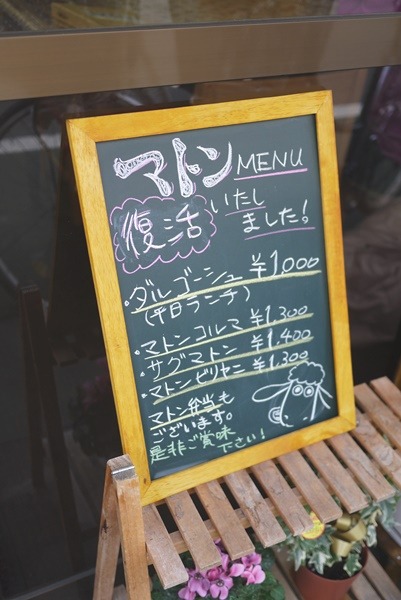 マトンMENU
復活いたし
ました!
・ダルゴーシュ ¥1,000
(平日ランチ)
・マトンコルマ ¥1.300
・サグマトン ¥1.400
・マトンビリヤニ ¥1.300
マトン弁当も
ございます。
是非ご賞味
下さい!